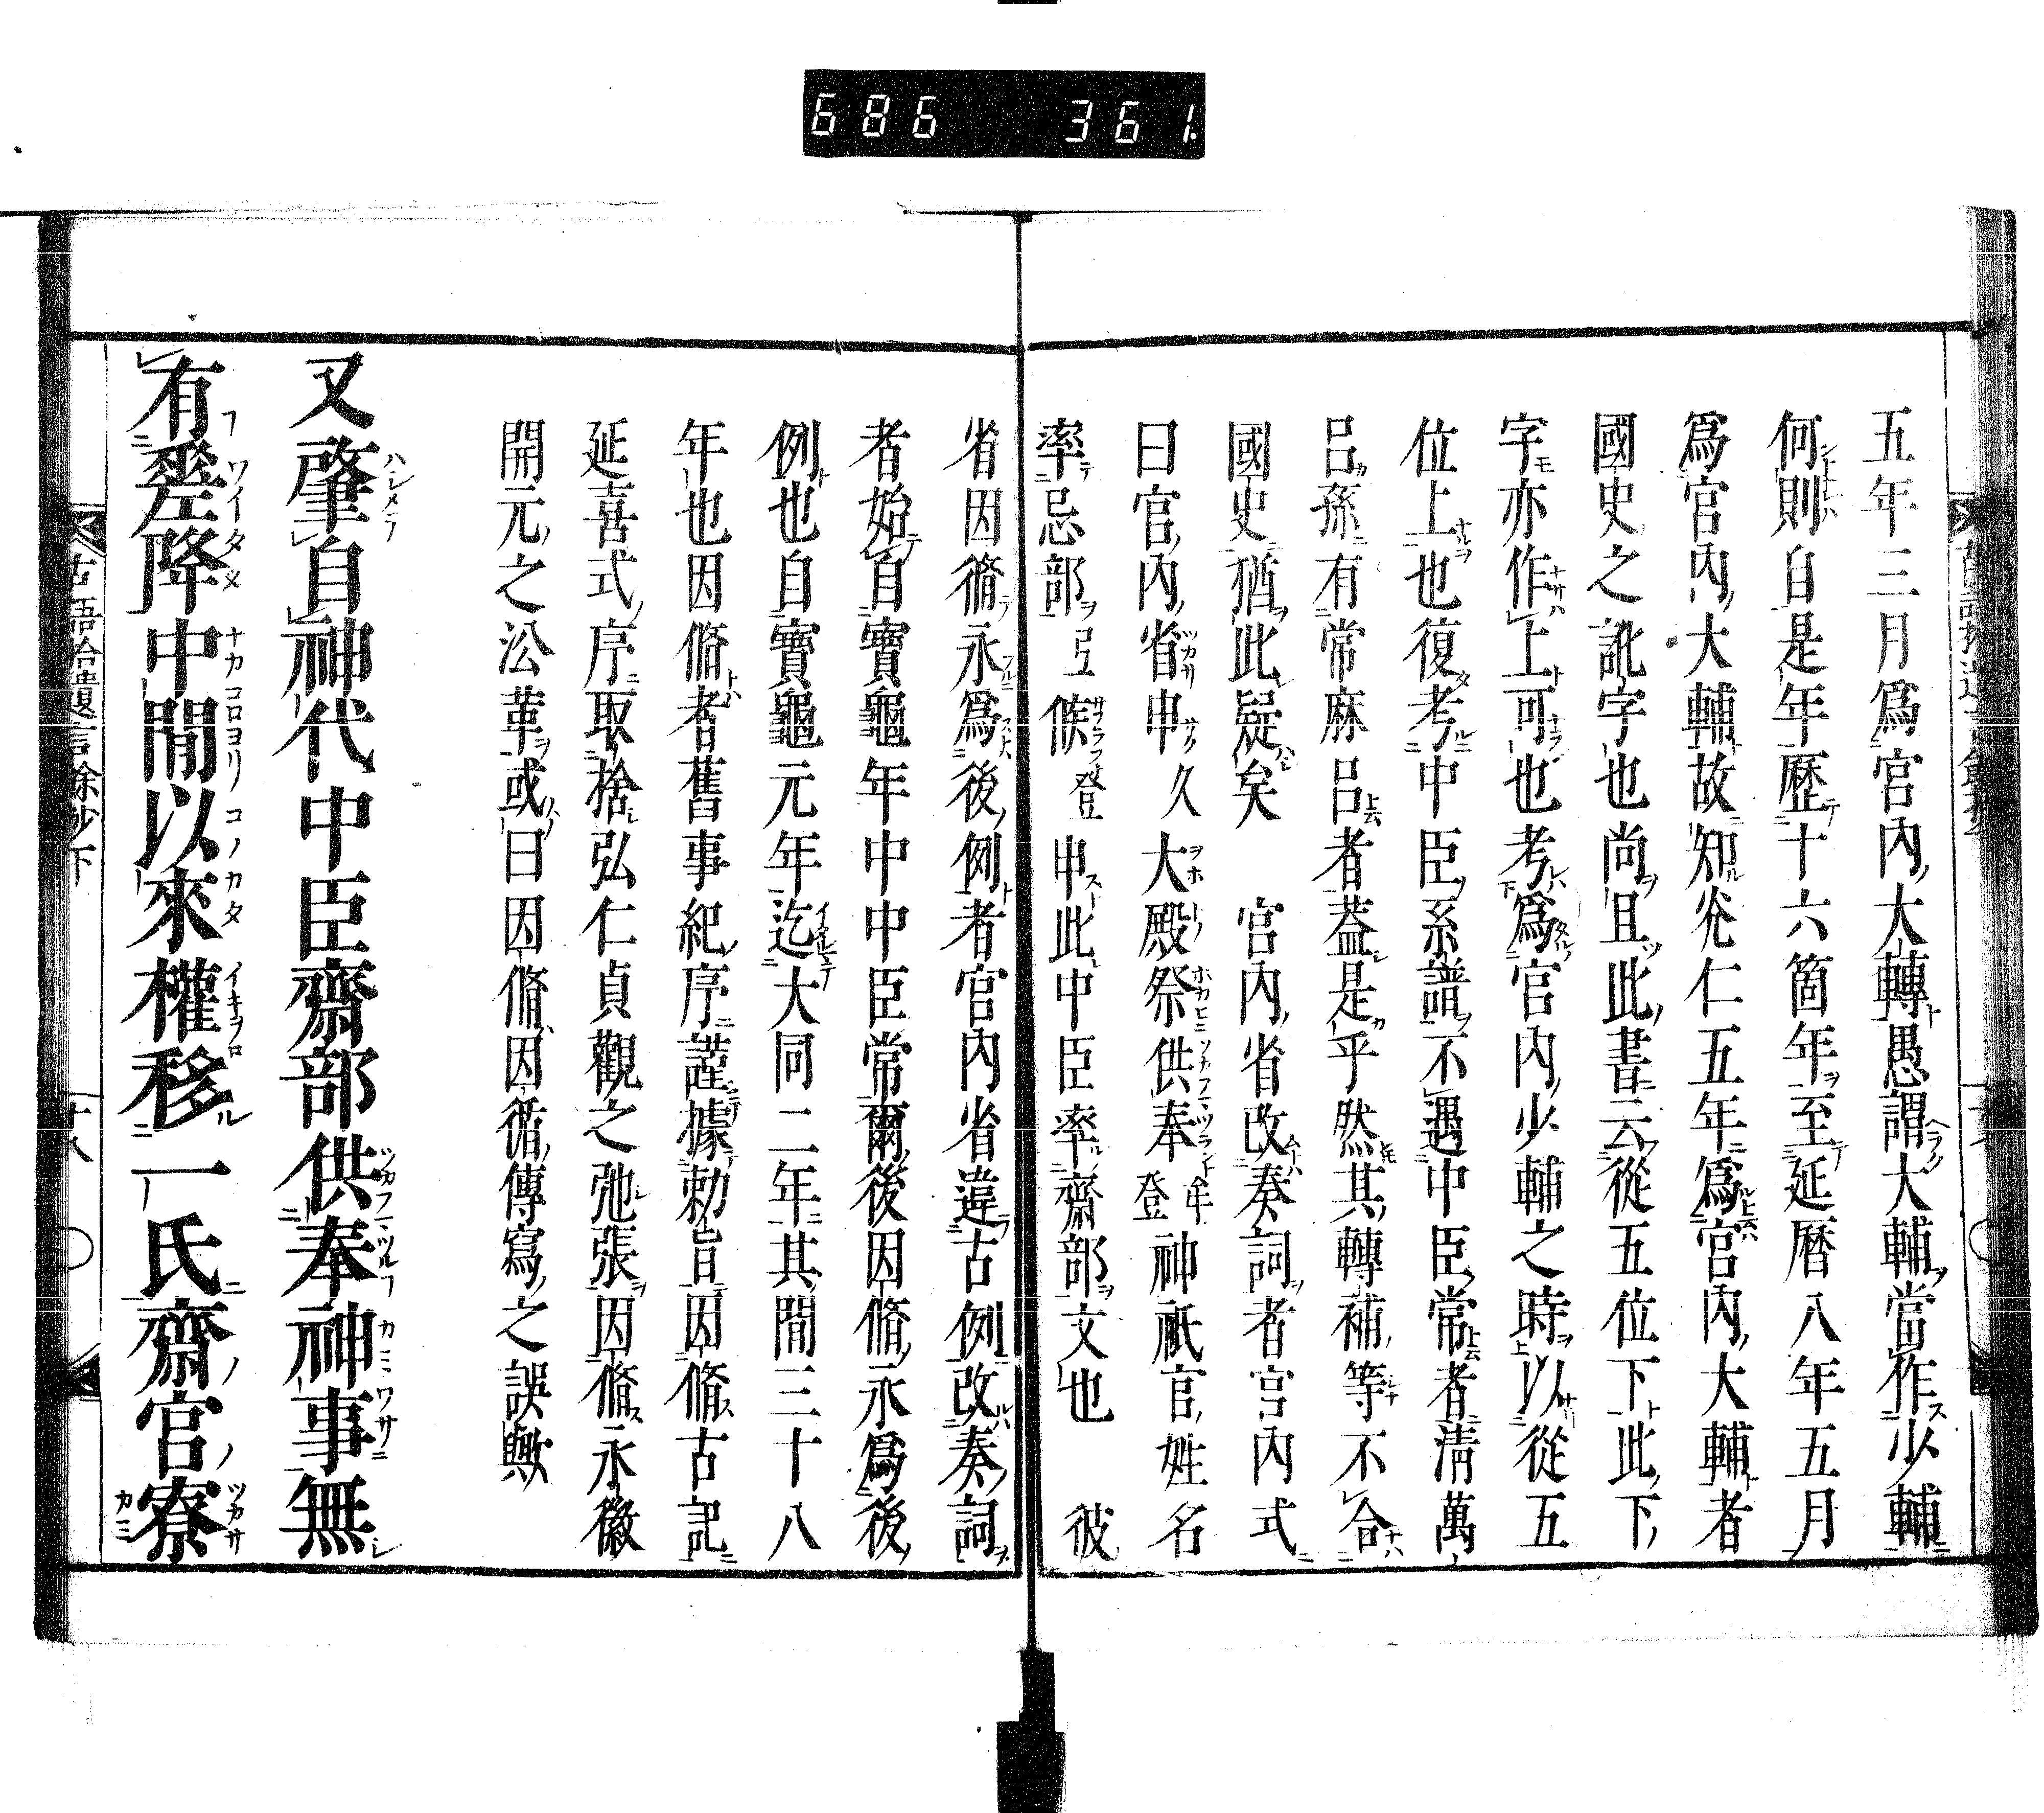 686 361.
五年三月爲官內大轉愚謂大輔當作少輔
何則自是年歷十六箇年至延曆八年五月
爲官內大輔故知光仁五年爲官內大輔者
國史之訛字也尚且此書云從五位下此下
字亦作上可也考爲官內少輔之時以從五
位上也復考中臣系譜不遇中臣常者淸萬
呂孫有常麻呂者葢是乎然其轉補等不合
國史猶此疑矣 宮內省改奏詞者宮內式
曰官內省申久大殿祭供奉登牟神祇官姓名
率忌部弖候登申此中臣率齋部文也 彼
省因脩永爲後例者宮內省違古例改奏詞
者始自寶龜年中中臣常爾後因脩永爲後
例也自寶龜元年迄大同二年其間三十八
年也因脩者舊事紀序謹據勅旨因脩古記
延喜式序取捨弘仁貞觀之弛張因脩永徽
開元之沿革或曰因脩因循傳寫之誤歟
又肇自神代中臣齋部供奉神事無
有差降中間以來權移一氏齋宮寮
古語拾遺言餘抄下
十八